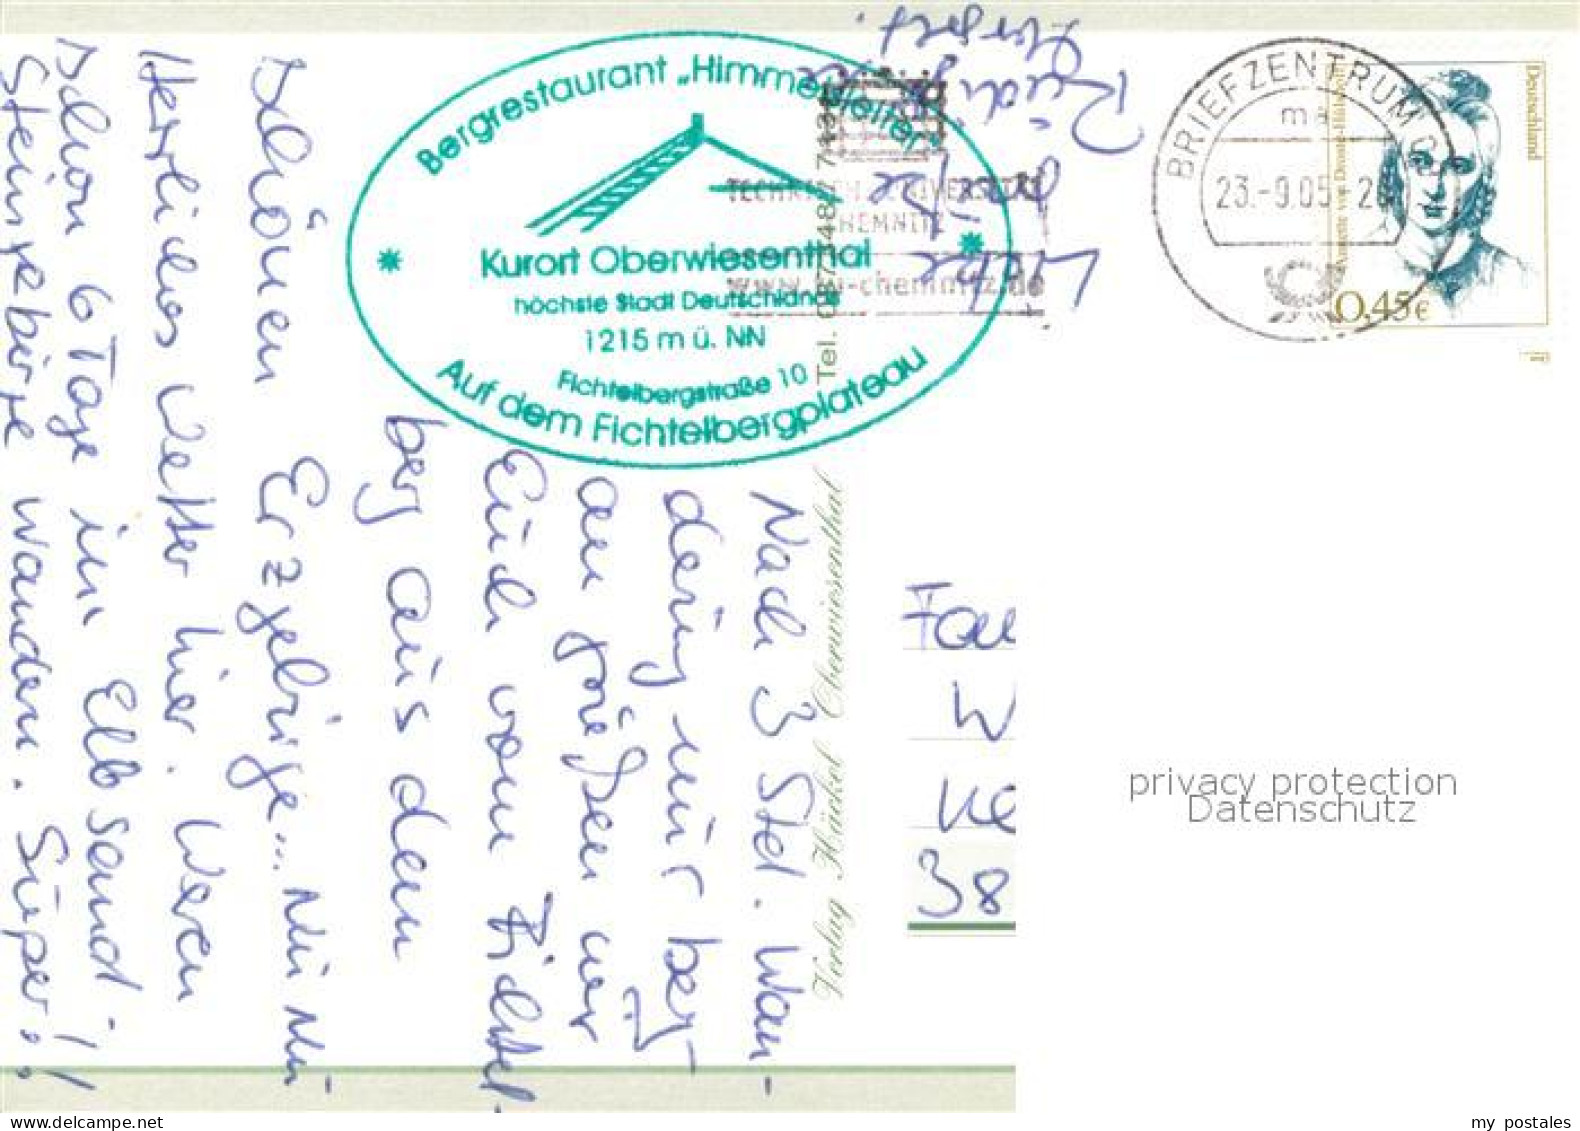 Nach 3 Std. Wan-
derung nur berg
an grüßen wir
Euch vom Fichtel-
berg aus dem
schönen Erzgebirge...
Herrliches Wetter hier. Waren
schon 6 Tage im Elbsand!
Steingebirge wandern. Super!
Liebe Grüße
Bergrestaurant „Himmelsleiter"
Kurort Oberwiesenthal
höchste Stadt Deutschlands
1215 m ü. NN
Fichtelbergstraße 10
Auf dem Fichtelbergplateau
Tel.
TECHNISCHE UNIVERSITÄT
CHEMNITZ
www.tu-chemnitz.de
BRIEFZENTRUM 09
ma
23.-9.05
Deutschland
Annette von Droste-Hülshoff
0,45€
Verlag Häckel Oberwiesenthal
Fam
W
38
privacy protection
Datenschutz
my postales
www.delcampe.net